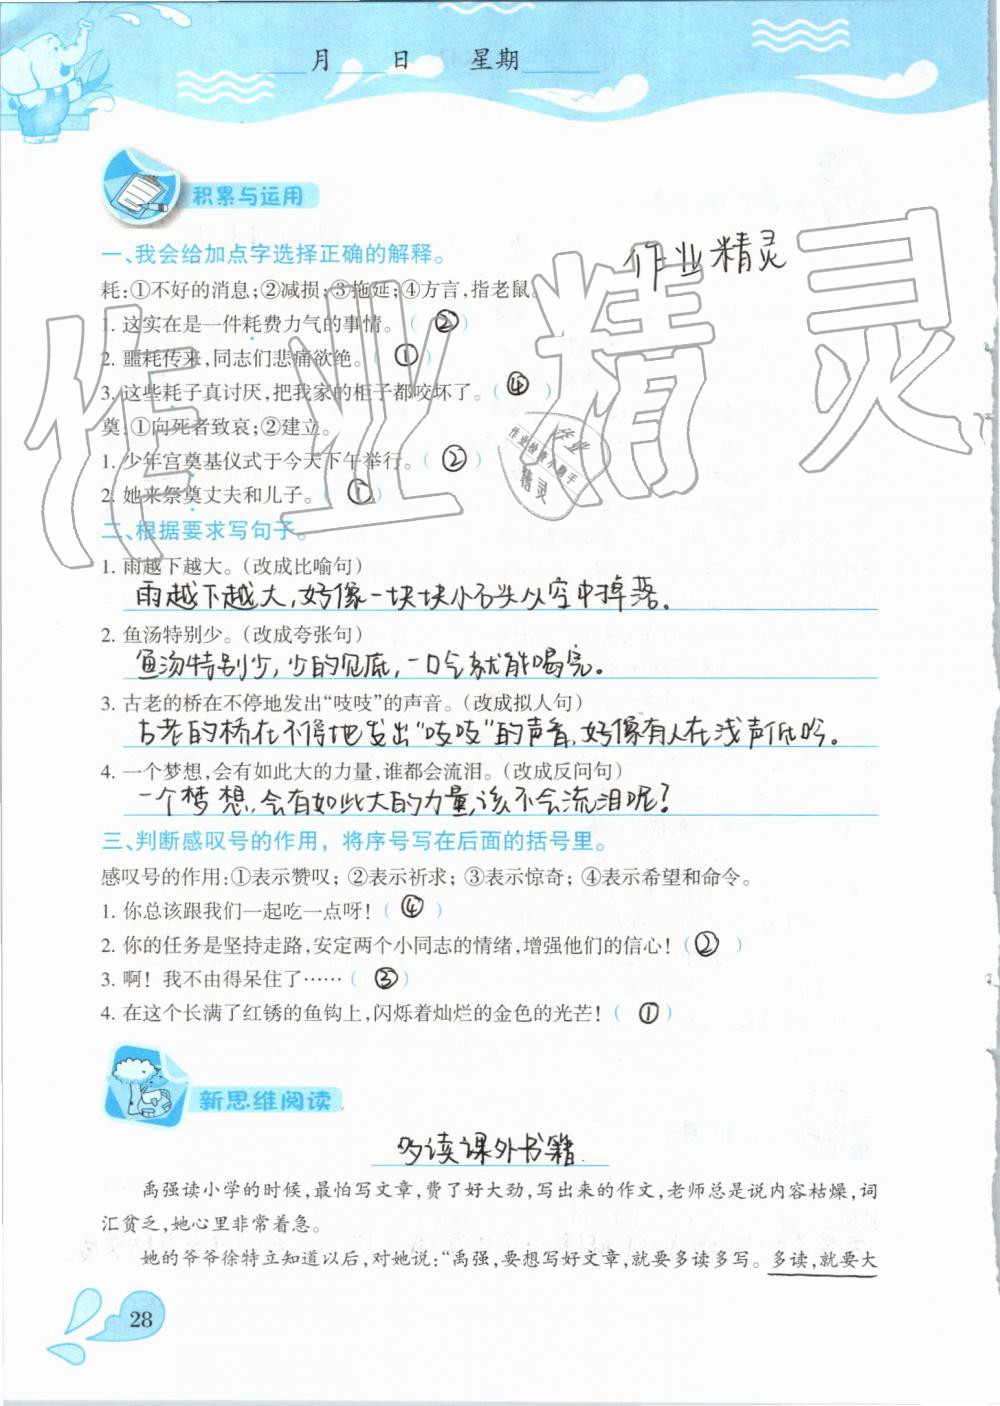 月 日 星期
积累与运用
一、我会给加点字选择正确的解释。
作业精灵
耗:①不好的消息;②减损;③拖延;④方言,指老鼠。
1. 这实在是一件耗费力气的事情。( ② )
2. 噩耗传来,同志们悲痛欲绝。( ① )
3. 这些耗子真讨厌,把我家的柜子都咬坏了。( ④ )
奠:①向死者致哀;②建立。
1. 少年宫奠基仪式于今天下午举行。( ② )
2. 她来祭奠丈夫和儿子。( ① )
作业精灵
作业
作业检查小助手
精灵
二、根据要求写句子。
1. 雨越下越大。(改成比喻句)
雨越下越大,好像一块块小石头从空中掉落。
2. 鱼汤特别少。(改成夸张句)
鱼汤特别少,少的见底,一口气就能喝完。
3. 古老的桥在不停地发出“吱吱”的声音。(改成拟人句)
古老的桥在不停地发出“吱吱”的声音,好像有人在浅声低吟。
4. 一个梦想,会有如此大的力量,谁都会流泪。(改成反问句)
一个梦想,会有如此大的力量,谁不会流泪呢?
三、判断感叹号的作用，将序号写在后面的括号里。
感叹号的作用:①表示赞叹; ②表示祈求; ③表示惊奇; ④表示希望和命令。
1. 你总该跟我们一起吃一点呀! ( ④ )
2. 你的任务是坚持走路,安定两个小同志的情绪,增强他们的信心! ( ② )
3. 啊! 我不由得呆住了……( ③ )
4. 在这个长满了红锈的鱼钩上,闪烁着灿烂的金色的光芒! ( ① )
新思维阅读
多读课外书籍
禹强读小学的时候,最怕写文章,费了好大劲,写出来的作文,老师总是说内容枯燥,词
汇贫乏,她心里非常着急。
她的爷爷徐特立知道以后,对她说:“禹强,要想写好文章,就要多读多写。多读,就要大
28